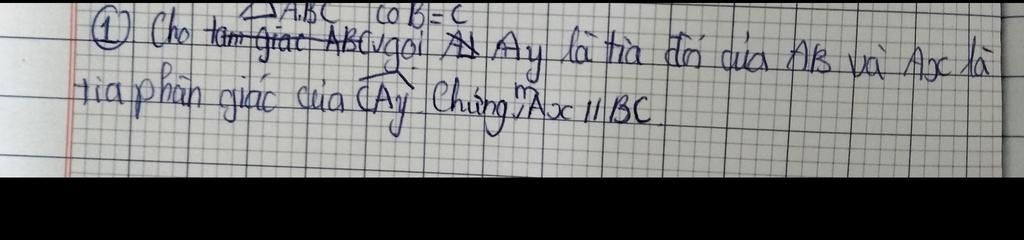 △ABC có B=C
① Cho tam giác ABC, gọi Ay là tia đối của AB và Ax là
tia phân giác của CAy Chứng m Ax // BC